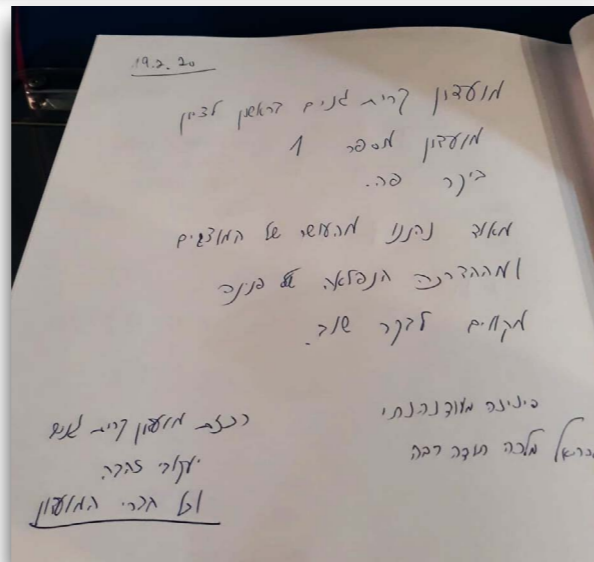 19.2.20
מועדון קרית גנים בראשון לציון
מועדון מספר 1
ביקר פה.
מאוד נהננו מהעושר של המוצגים
ומההדרכה הנפלאה של פנינה
מקווים לבקר שוב.
פינינה מאוד נהנתי
מלכה תודה רבה
רכזת מועדון קרית גנים
יעקובי זהבה
וכל חברי המועדון